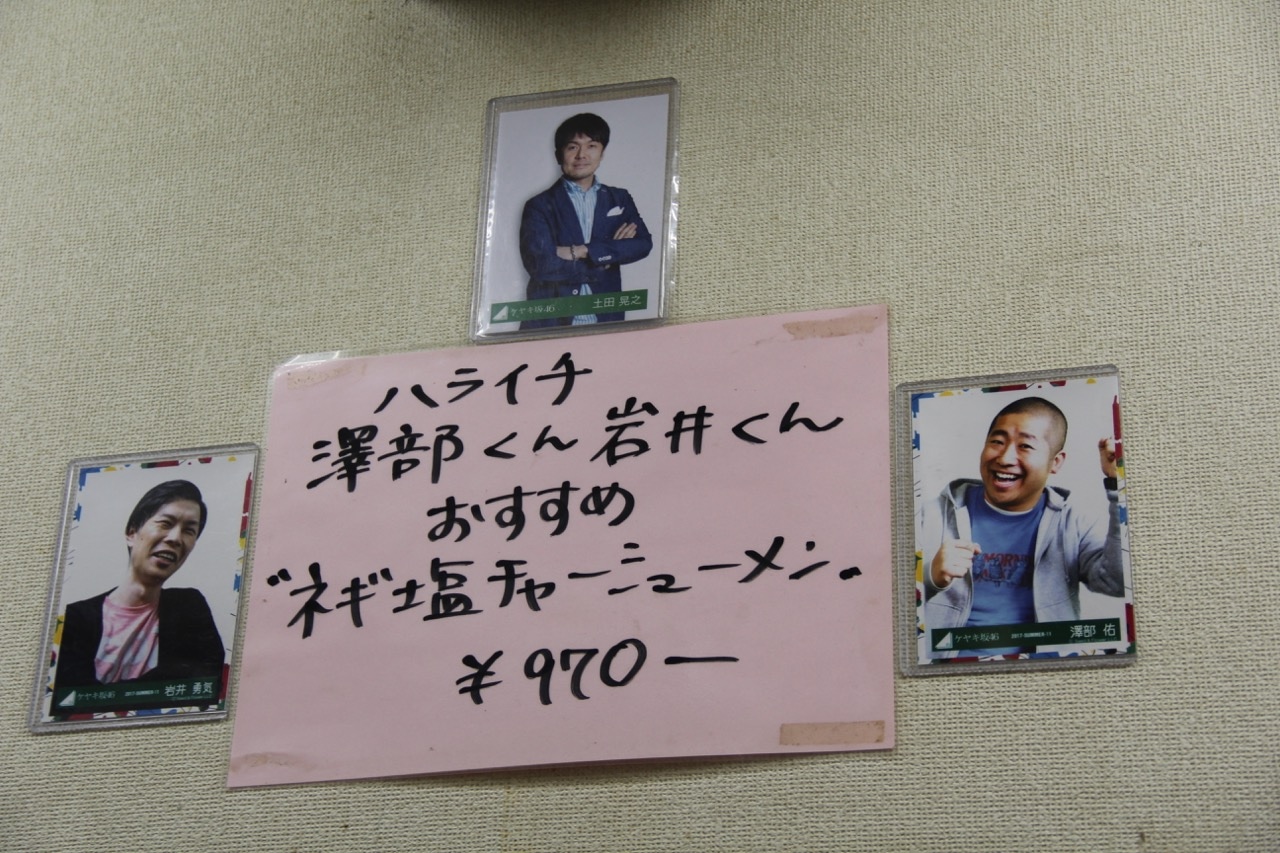 ケヤキ坂46 土田 晃之
ハライチ
澤部くん岩井くん
おすすめ
"ネギ塩チャーシューメン"
¥970ー
ケヤキ坂46 2017-SUMMER-11 岩井 勇気
ケヤキ坂46 2017-SUMMER-11 澤部 佑